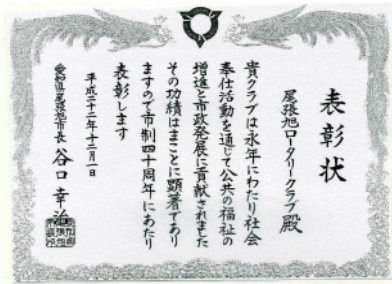 表彰状
尾張旭ロータリークラブ殿
貴クラブは永年にわたり社会
奉仕活動を通じて公共の福祉の
増進と市政発展に貢献されました
その功績はまことに顕著であり
ますので市制四十周年にあたり
表彰します
平成二十二年十二月一日
愛知県尾張旭市長 谷口幸治